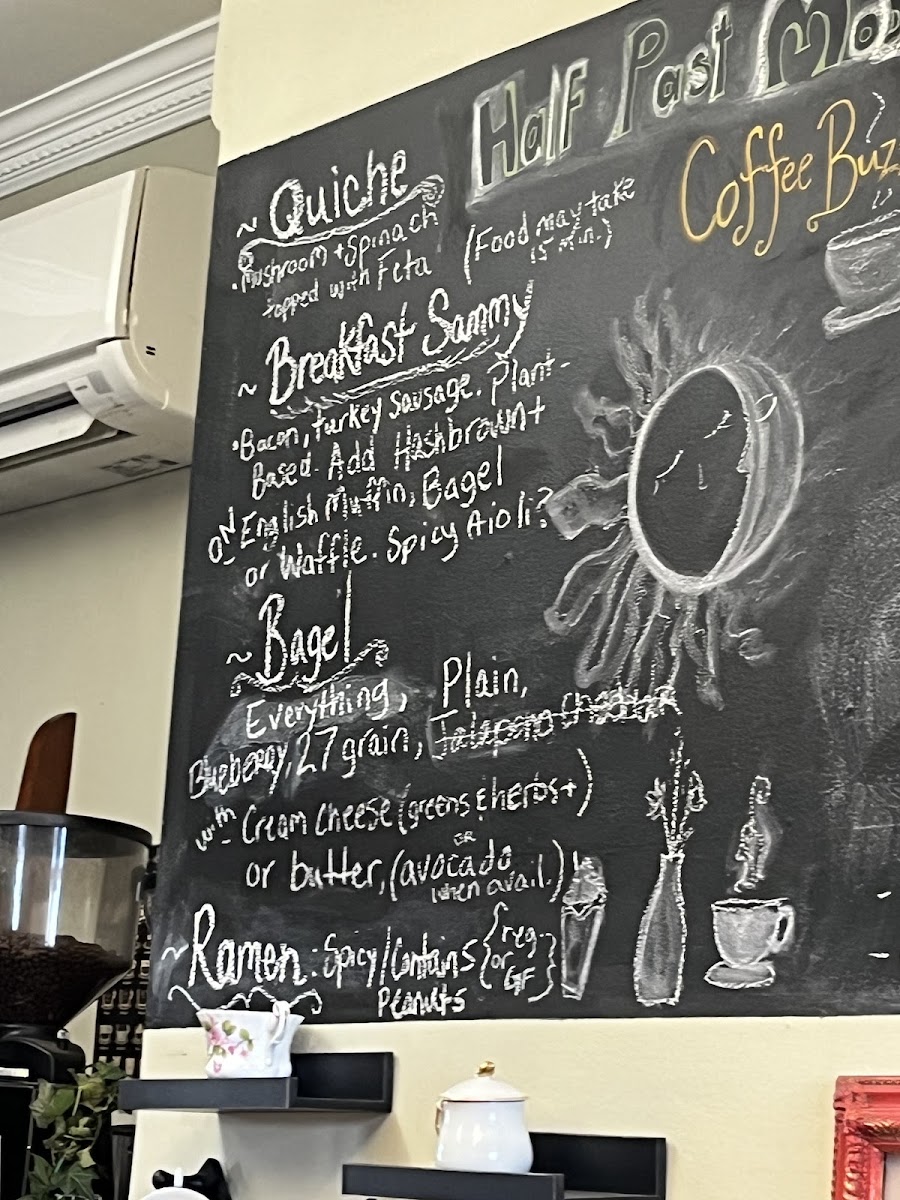 Half Past
Coffee
~ Quiche
• Mushroom + Spinach
topped with Feta
(Food may take
15 min.)
~ Breakfast Sammy
• Bacon, turkey sausage. Plant-
Based. Add Hashbrown+
ON English Muffin, Bagel
or Waffle. Spicy Aioli?
~ Bagel
Everything, Plain,
Blueberry, 27 grain, Jalapeno Cheddar
with Cream cheese (greens & herbs+)
or butter, (avocado OR
when avail.)
~ Ramen: Spicy/Contains
Peanuts
{reg.
or
GF}